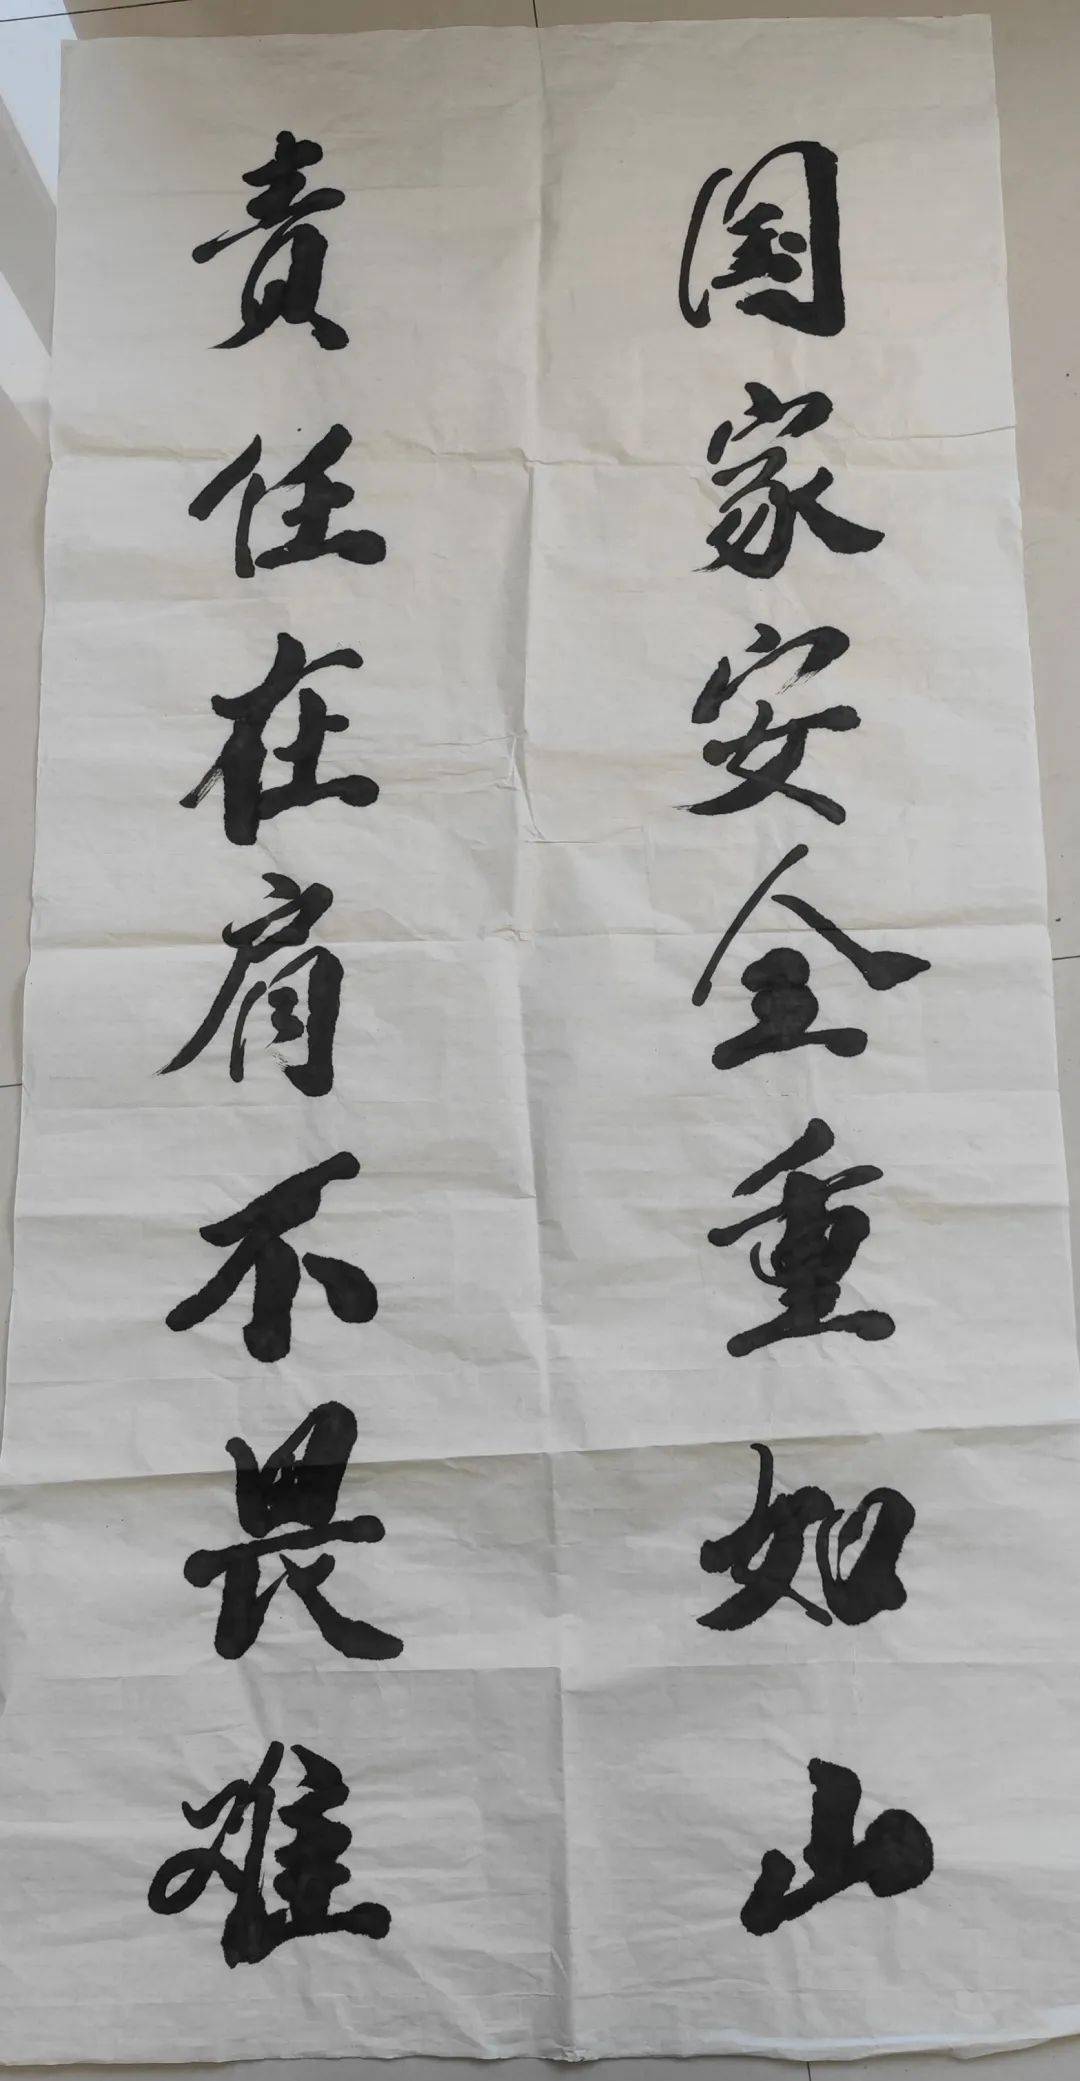 国家安全重如山
责任在肩不畏难